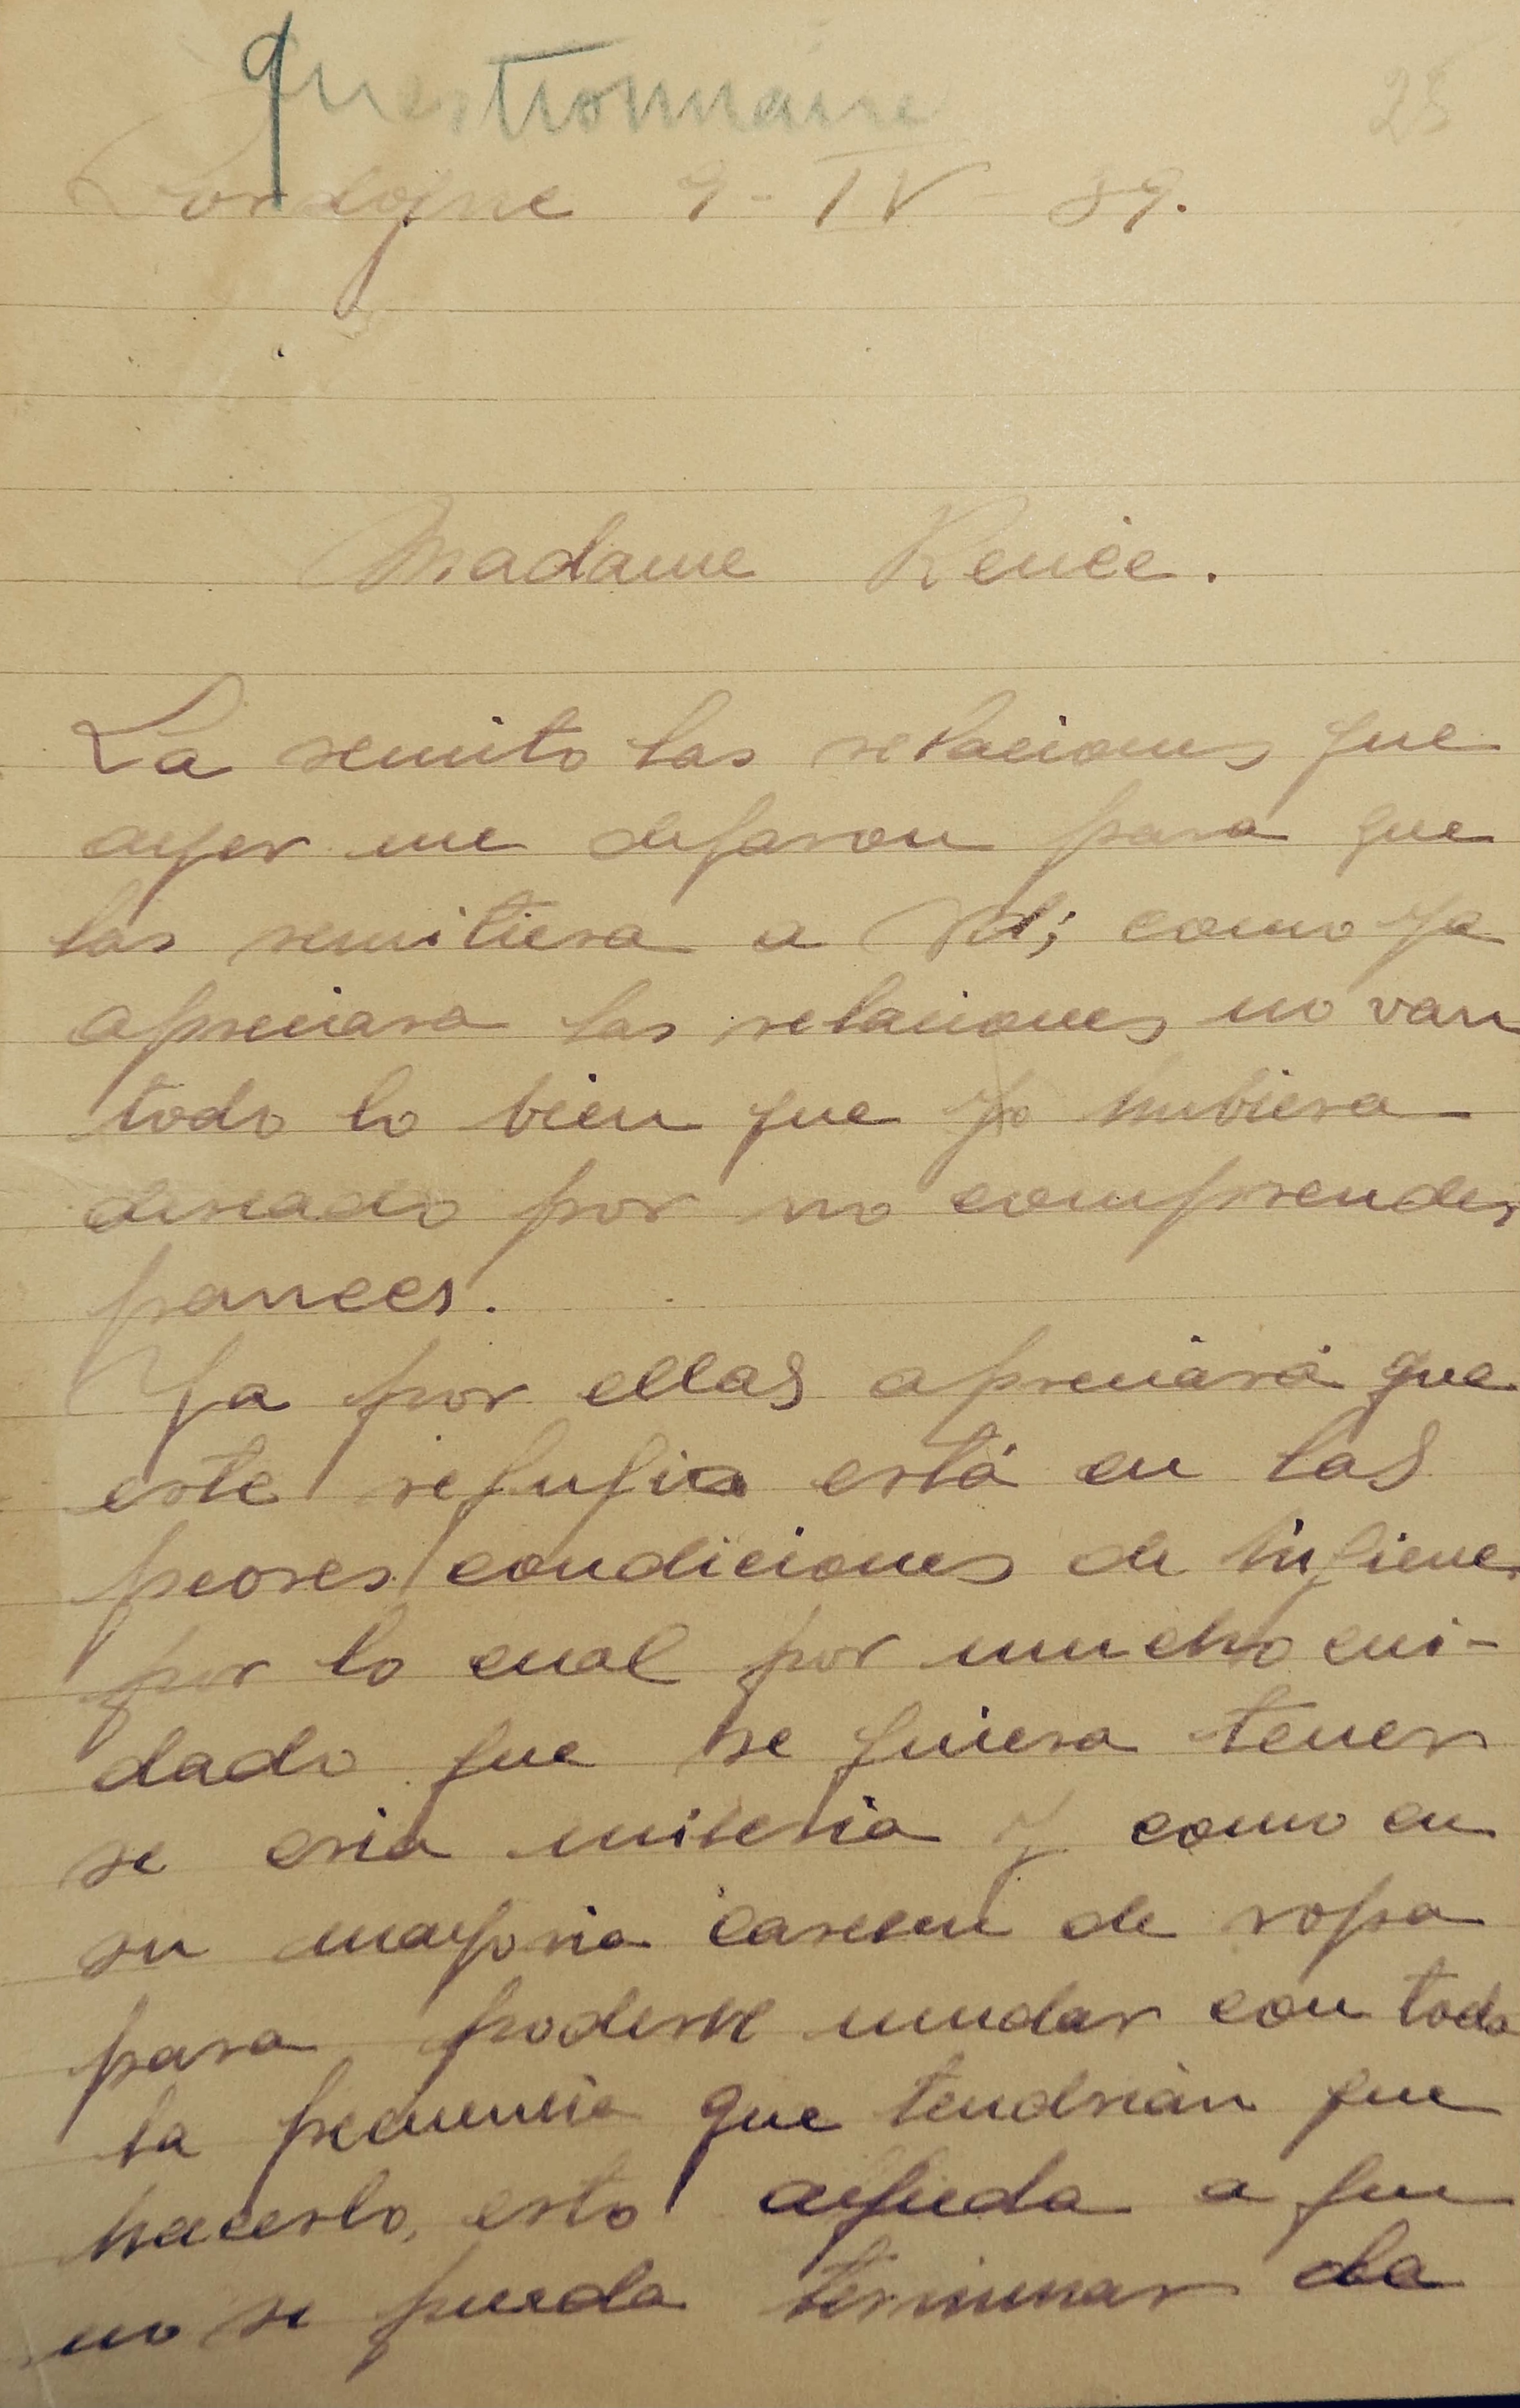 questionnaire
25
Dordogne 9-IV 39.
Madame Renée.
La remito las relaciones que
ayer me dejaron para que
las remitiera a Vd; como ya
apreciara las relaciones no van
todo lo bien que yo hubiera
deseado por no comprender
frances.
Ya por ellas apreciará que
este refugio está en las
peores condiciones de higiene
por lo cual por mucho cui-
dado que se quiera tener
se cria miseria y como en
su mayoria carecen de ropa
para poderse mudar con toda
la frecuencia que tendrian que
hacerlo, esto ayuda a que
no se pueda terminar la